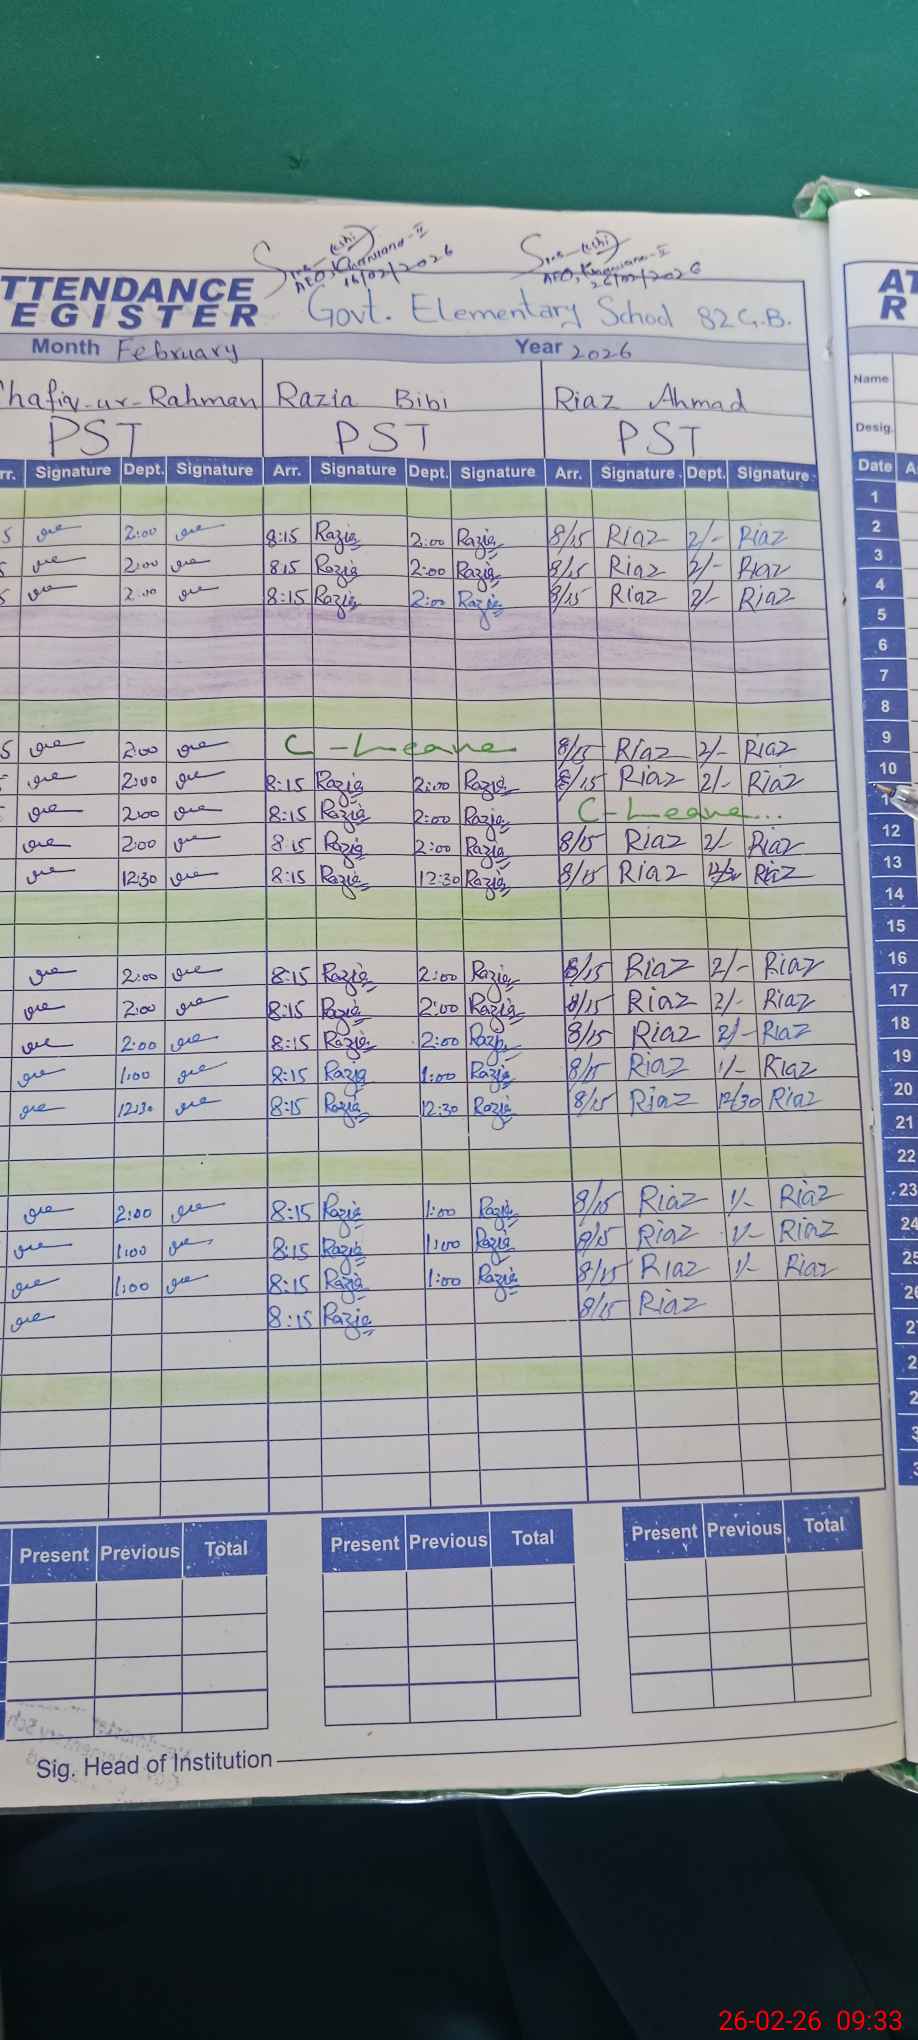 16/02/2026
AEO, Khurrianwala-II
26/02/2026
TTENDANCE
EGISTER
Govt. Elementary School 82 G.B.
Month February Year 2026
hafiq-ur-Rahman Razia Bibi Riaz Ahmad
PST PST PST
rr. Signature Dept. Signature Arr. Signature Dept. Signature Arr. Signature Dept. Signature
5 2:00 8:15 Razia 2:00 Razia 8/15 Riaz 2/- Riaz
5 2:00 8:15 Razia 2:00 Razia 8/15 Riaz 2/- Riaz
5 2:00 8:15 Razia 2:00 Razia 8/15 Riaz 2/- Riaz
5 2:00 C-Leave 8/15 Riaz 2/- Riaz
2:00 8:15 Razia 2:00 Razia 8/15 Riaz 2/- Riaz
2:00 8:15 Razia 2:00 Razia C-Leave...
2:00 8:15 Razia 2:00 Razia 8/15 Riaz 2/- Riaz
12:30 8:15 Razia 12:30 Razia 8/15 Riaz 12/30 Riaz
2:00 8:15 Razia 2:00 Razia 8/15 Riaz 2/- Riaz
2:00 8:15 Razia 2:00 Razia 8/15 Riaz 2/- Riaz
2:00 8:15 Razia 2:00 Razia 8/15 Riaz 2/- Riaz
1:00 8:15 Razia 1:00 Razia 8/15 Riaz 1/- Riaz
12:30 8:15 Razia 12:30 Razia 8/15 Riaz 12/30 Riaz
2:00 8:15 Razia 1:00 Razia 8/15 Riaz 1/- Riaz
1:00 8:15 Razia 1:00 Razia 8/15 Riaz 1/- Riaz
1:00 8:15 Razia 1:00 Razia 8/15 Riaz 1/- Riaz
8:15 Razia 8/15 Riaz
Present Previous Total Present Previous Total Present Previous Total
Sig. Head of Institution
AT
R
Name
Desig.
Date A
1
2
3
4
5
6
7
8
9
10
1
12
13
14
15
16
17
18
19
20
21
22
23
24
25
26
2
2
2
3
3
26-02-26 09:33